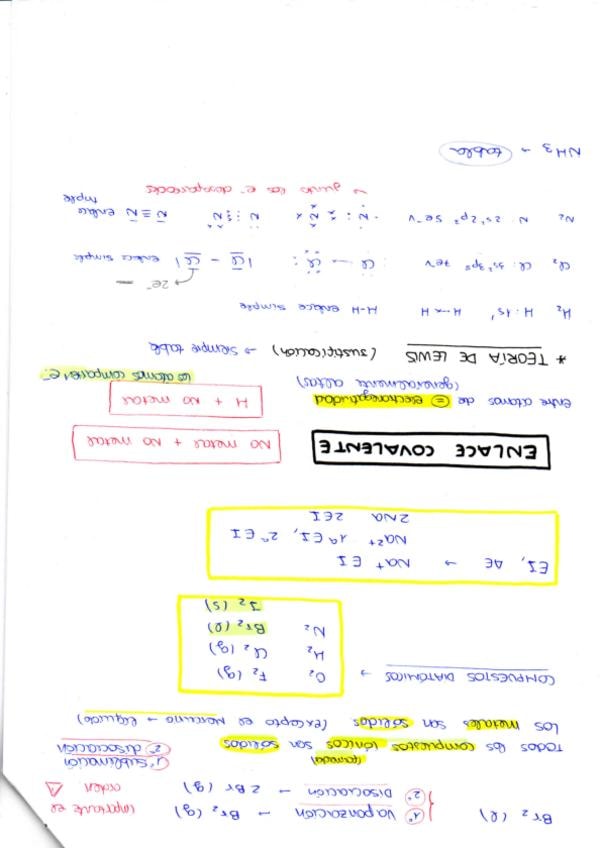 Br2 (l) 1º VAPORIZACIÓN → Br2 (g) importante el
2º DISOCIACIÓN → 2Br (g) orden
1º sublimación
2º disociación
(formado)
Todos los compuestos iónicos son sólidos
Los metales son sólidos (excepto el mercurio → líquido)
COMPUESTOS DIATÓMICOS → O2 F2 (g)
H2 Cl2 (g)
N2 Br2 (l)
I2 (s)
EI, AE → Na+ EI
Na2+ 1ª EI, 2ª EI
2Na 2EI
ENLACE COVALENTE
NO METAL + NO METAL
H + NO METAL
entre átomos de = electronegatividad
(generalmente altas)
los átomos comparten e-
* TEORÍA DE LEWIS (justificación) → siempre tabla
H2 H: 1s1 H·×H H-H enlace simple
2e-
Cl2 Cl: 3s2 3p5 7e-v Cl — Cl |Cl - Cl| enlace simple
N2 N: 2s2 2p3 5e-v N N N N N≡N enlace triple
→ junto los e- desapareados
NH3 → tabla